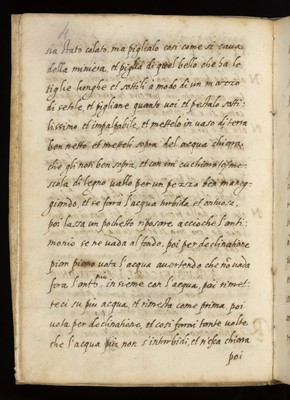 4
sia stato colato, ma piglialo cosi come si caua
della miniera, et piglia di quel bello che ha le
tiglie lunghe et sottili a modo di un mazzo
di setole, et pigliane quanto uoi et pestalo sotti-
lissimo et impalpabile, et mettelo in uaso di terra
ben netto et metteli sopra del acqua chiara,
che gli noti ben sopra, et con un cuchiaro
scola di legno uallo per un pezzo ben maneg-
giando, et se farà l'acqua torbida, et
poi lassa un pochetto riposare accioche l'anti-
monio se ne vada al fondo, poi per declinatione
pian piano vota l'acqua auertendo che no vada
fora l'antio insieme con l'acqua, poi rimet-
teci su più acqua, et rimesta come prima, poi
vota per declinatione, et cosi farai tante volte
che l'acqua più non s'intorbidi, et n'esca chiara
poi